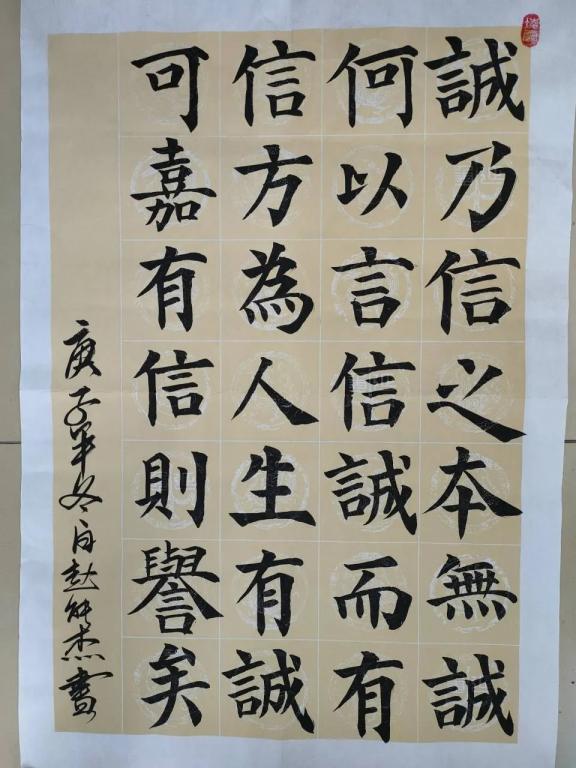 誠乃信之本無誠
何以言信誠而有
信方為人生有誠
可嘉有信則譽矣
庚子年冬月赵能杰書